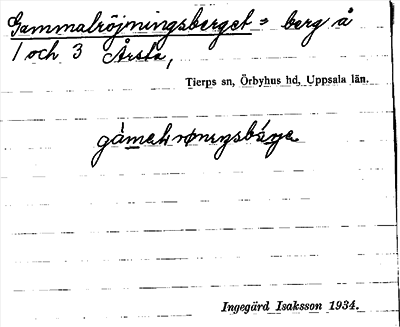 Gammalröjningsberget = berg å
1 och 3 Årsta,
Tierps sn, Örbyhus hd, Uppsala län.
Ingegärd Isaksson 1934.